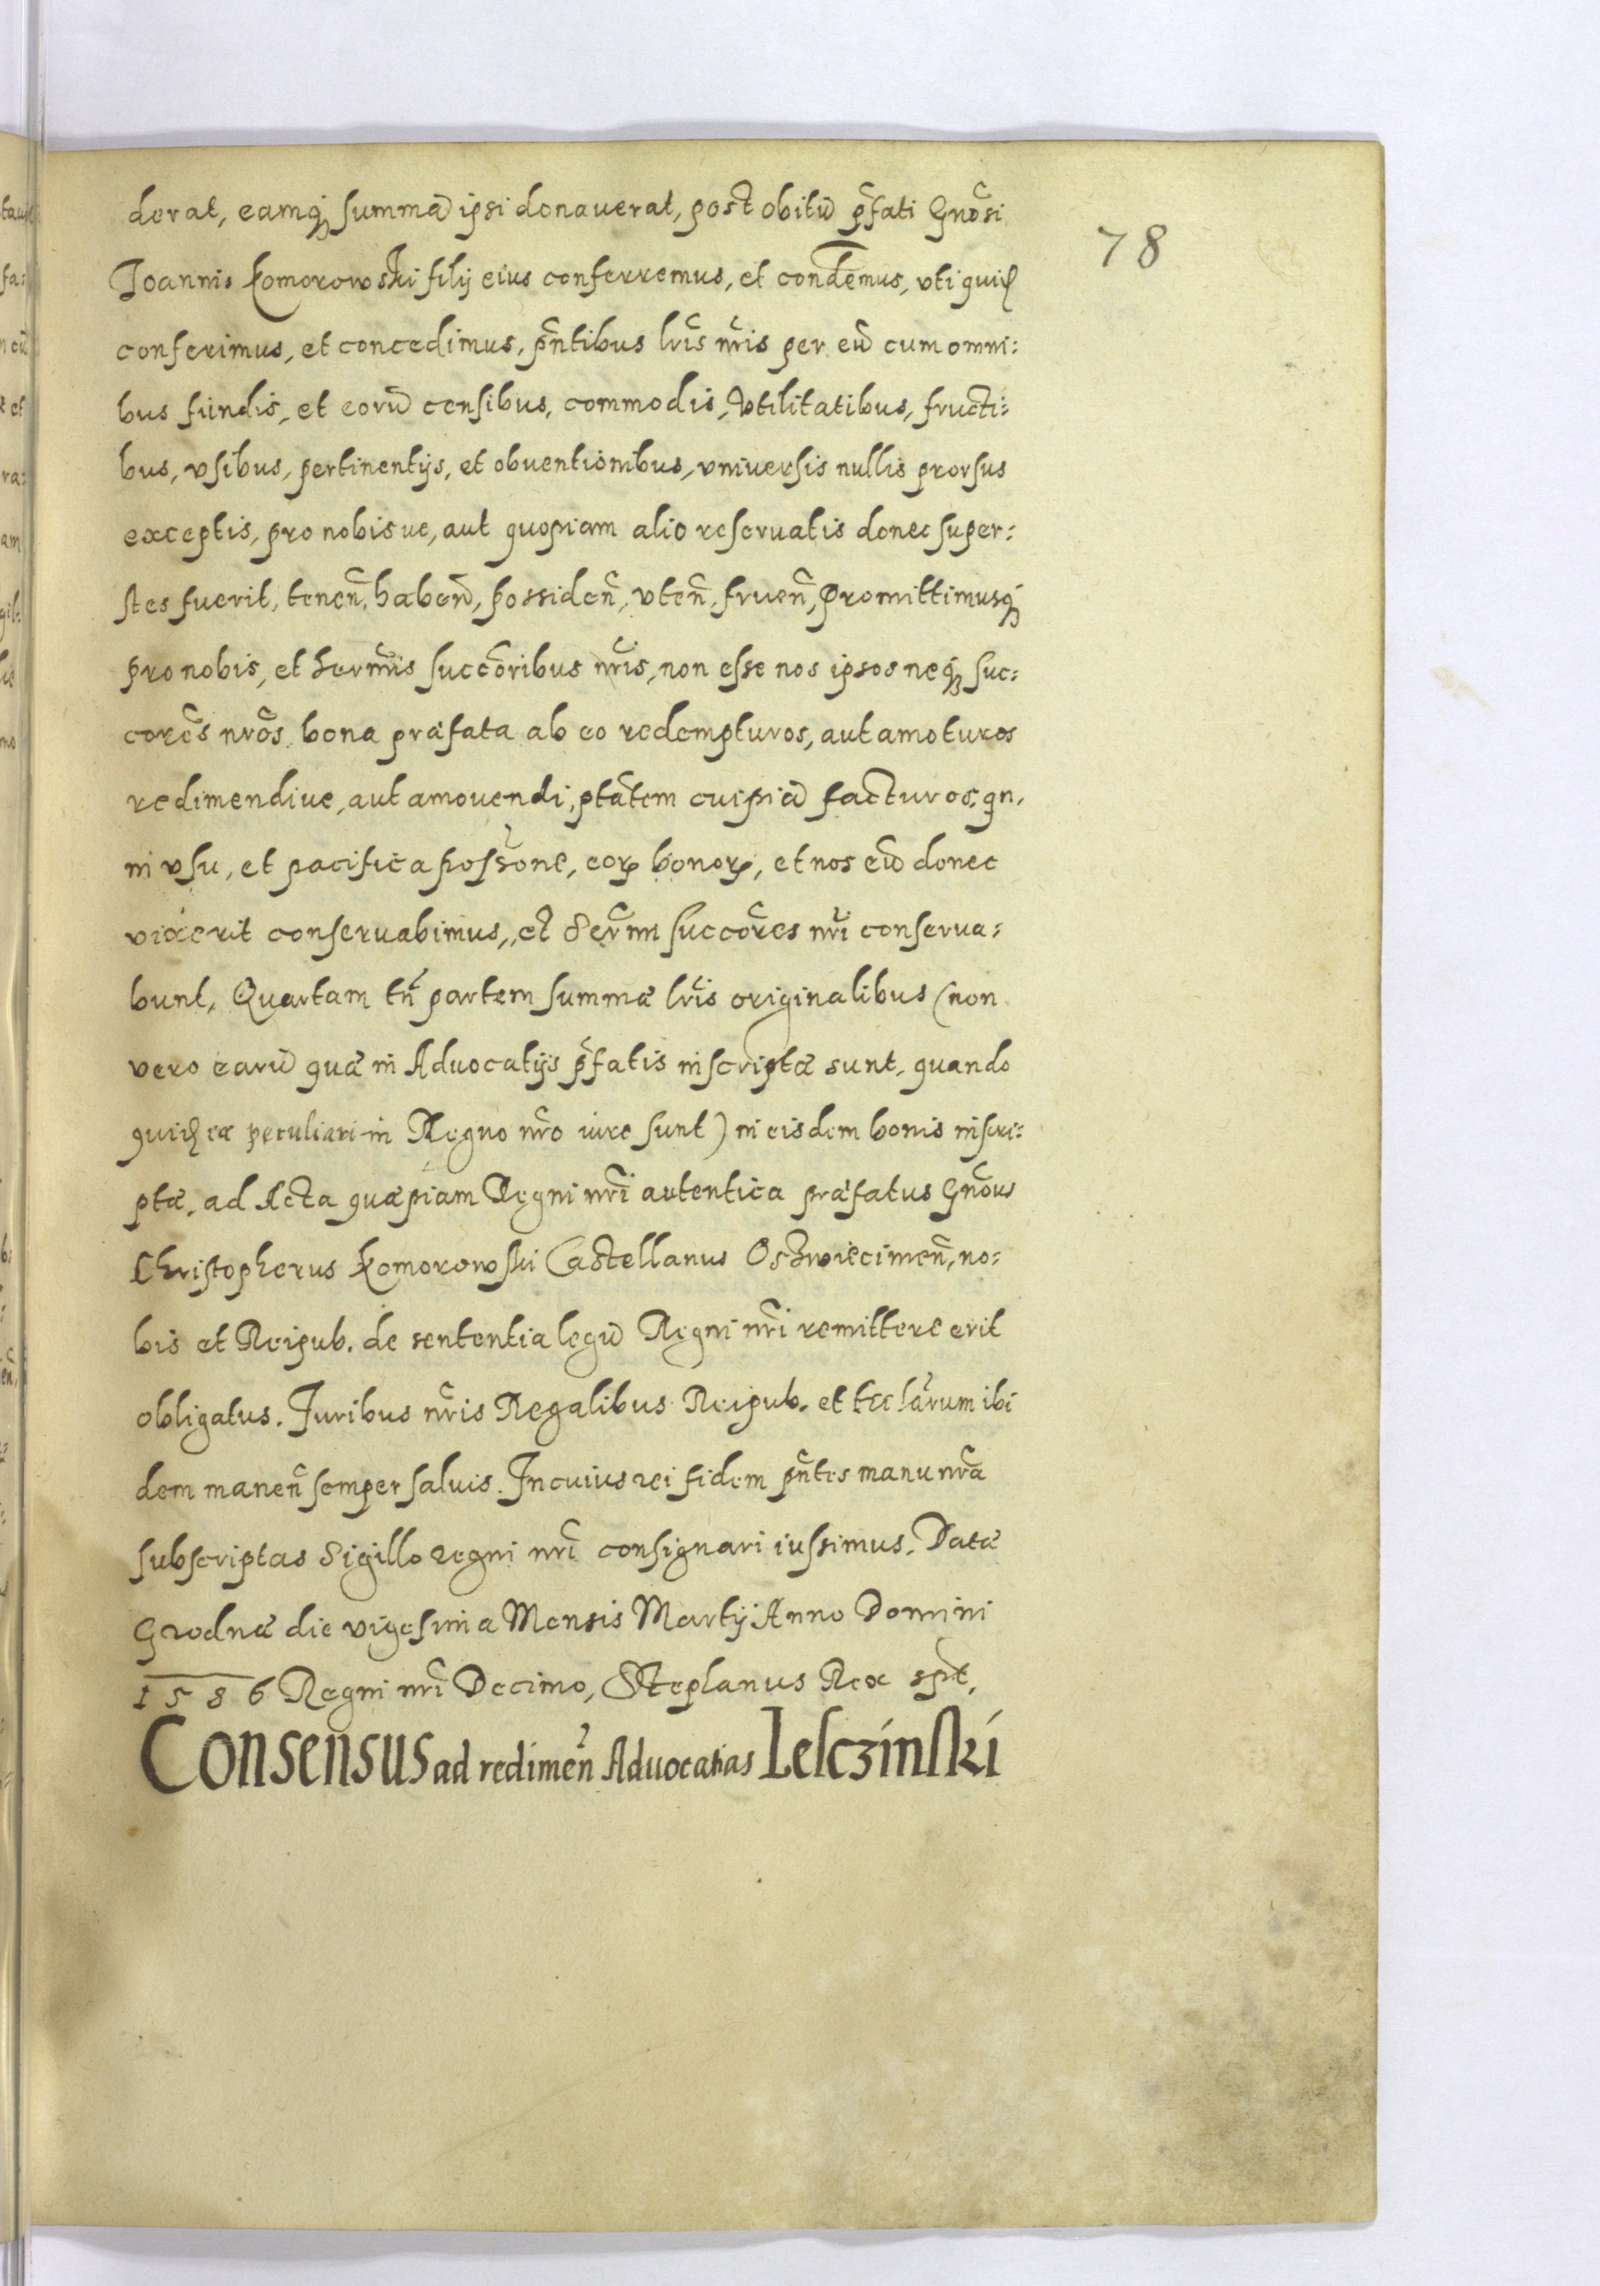 derat, eamq₃ summā ipsi donauerat, post obitū p̃fati Gnõsi
78
Joannis Komorowski filij eius conferremus, et condẽmus, vti quid̃
conferimus, et concedimus, pñtibus lr̃is nr̃is per eū cum omni:
bus fundis, et eorū censibus, commodis, vtilitatibus, fructi:
bus, vsibus, pertinentijs, et obuentionibus, vniuersis nullis prorsus
exceptis, pro nobis ue, aut quopiam alio reseruatis donec super:
stes fuerit, teneñ, habeñ, possideñ, vteñ, frueñ, Promittimusq₃
pro nobis, et Serm̃is succõribus nr̃is, non esse nos ipsos neq₃ suc:
corẽs nrõs bona præfata ab eo redempturos, aut amoturos
redimendiue, aut amouendi, ptãtem cuipiā facturos, qn,
in vsu, et pacifica possẽone, eoꝝ bonoꝝ, et nos eū donec
vixerit conseruabimus, et Ser̃mi succõres nr̃i conserua:
bunt, Quartam tñ partem summæ lr̃is originalibus (non
vero earū quæ in Aduocatijs p̃fatis inscriptæ sunt, quando
quid̃ eæ peculiari in Regno nr̃o iure sunt) in eisdem bonis inscri:
ptæ, ad Acta quæpiam Regni nr̃i autentica præfatus Gnõus
Christopherus Komorowski Castellanus Oszwiecimeñ, no:
bis et Reipub. de sententia legū Regni nr̃i remittere erit
obligatus. Juribus nr̃is Regalibus Reipub. et Ecclãrum ibi
dem maneñ semper saluis. In cuius rei fidem pñtes manu nr̃a
subscriptas Sigillo regni nr̃i consignari iussimus. Datæ
Grodnæ die vigesima Mensis Martij Anno Domini
1586 Regni nr̃i Decimo, Stephanus Rex spt̃,
Consensus ad redimeñ Aduocatias Lelczinski